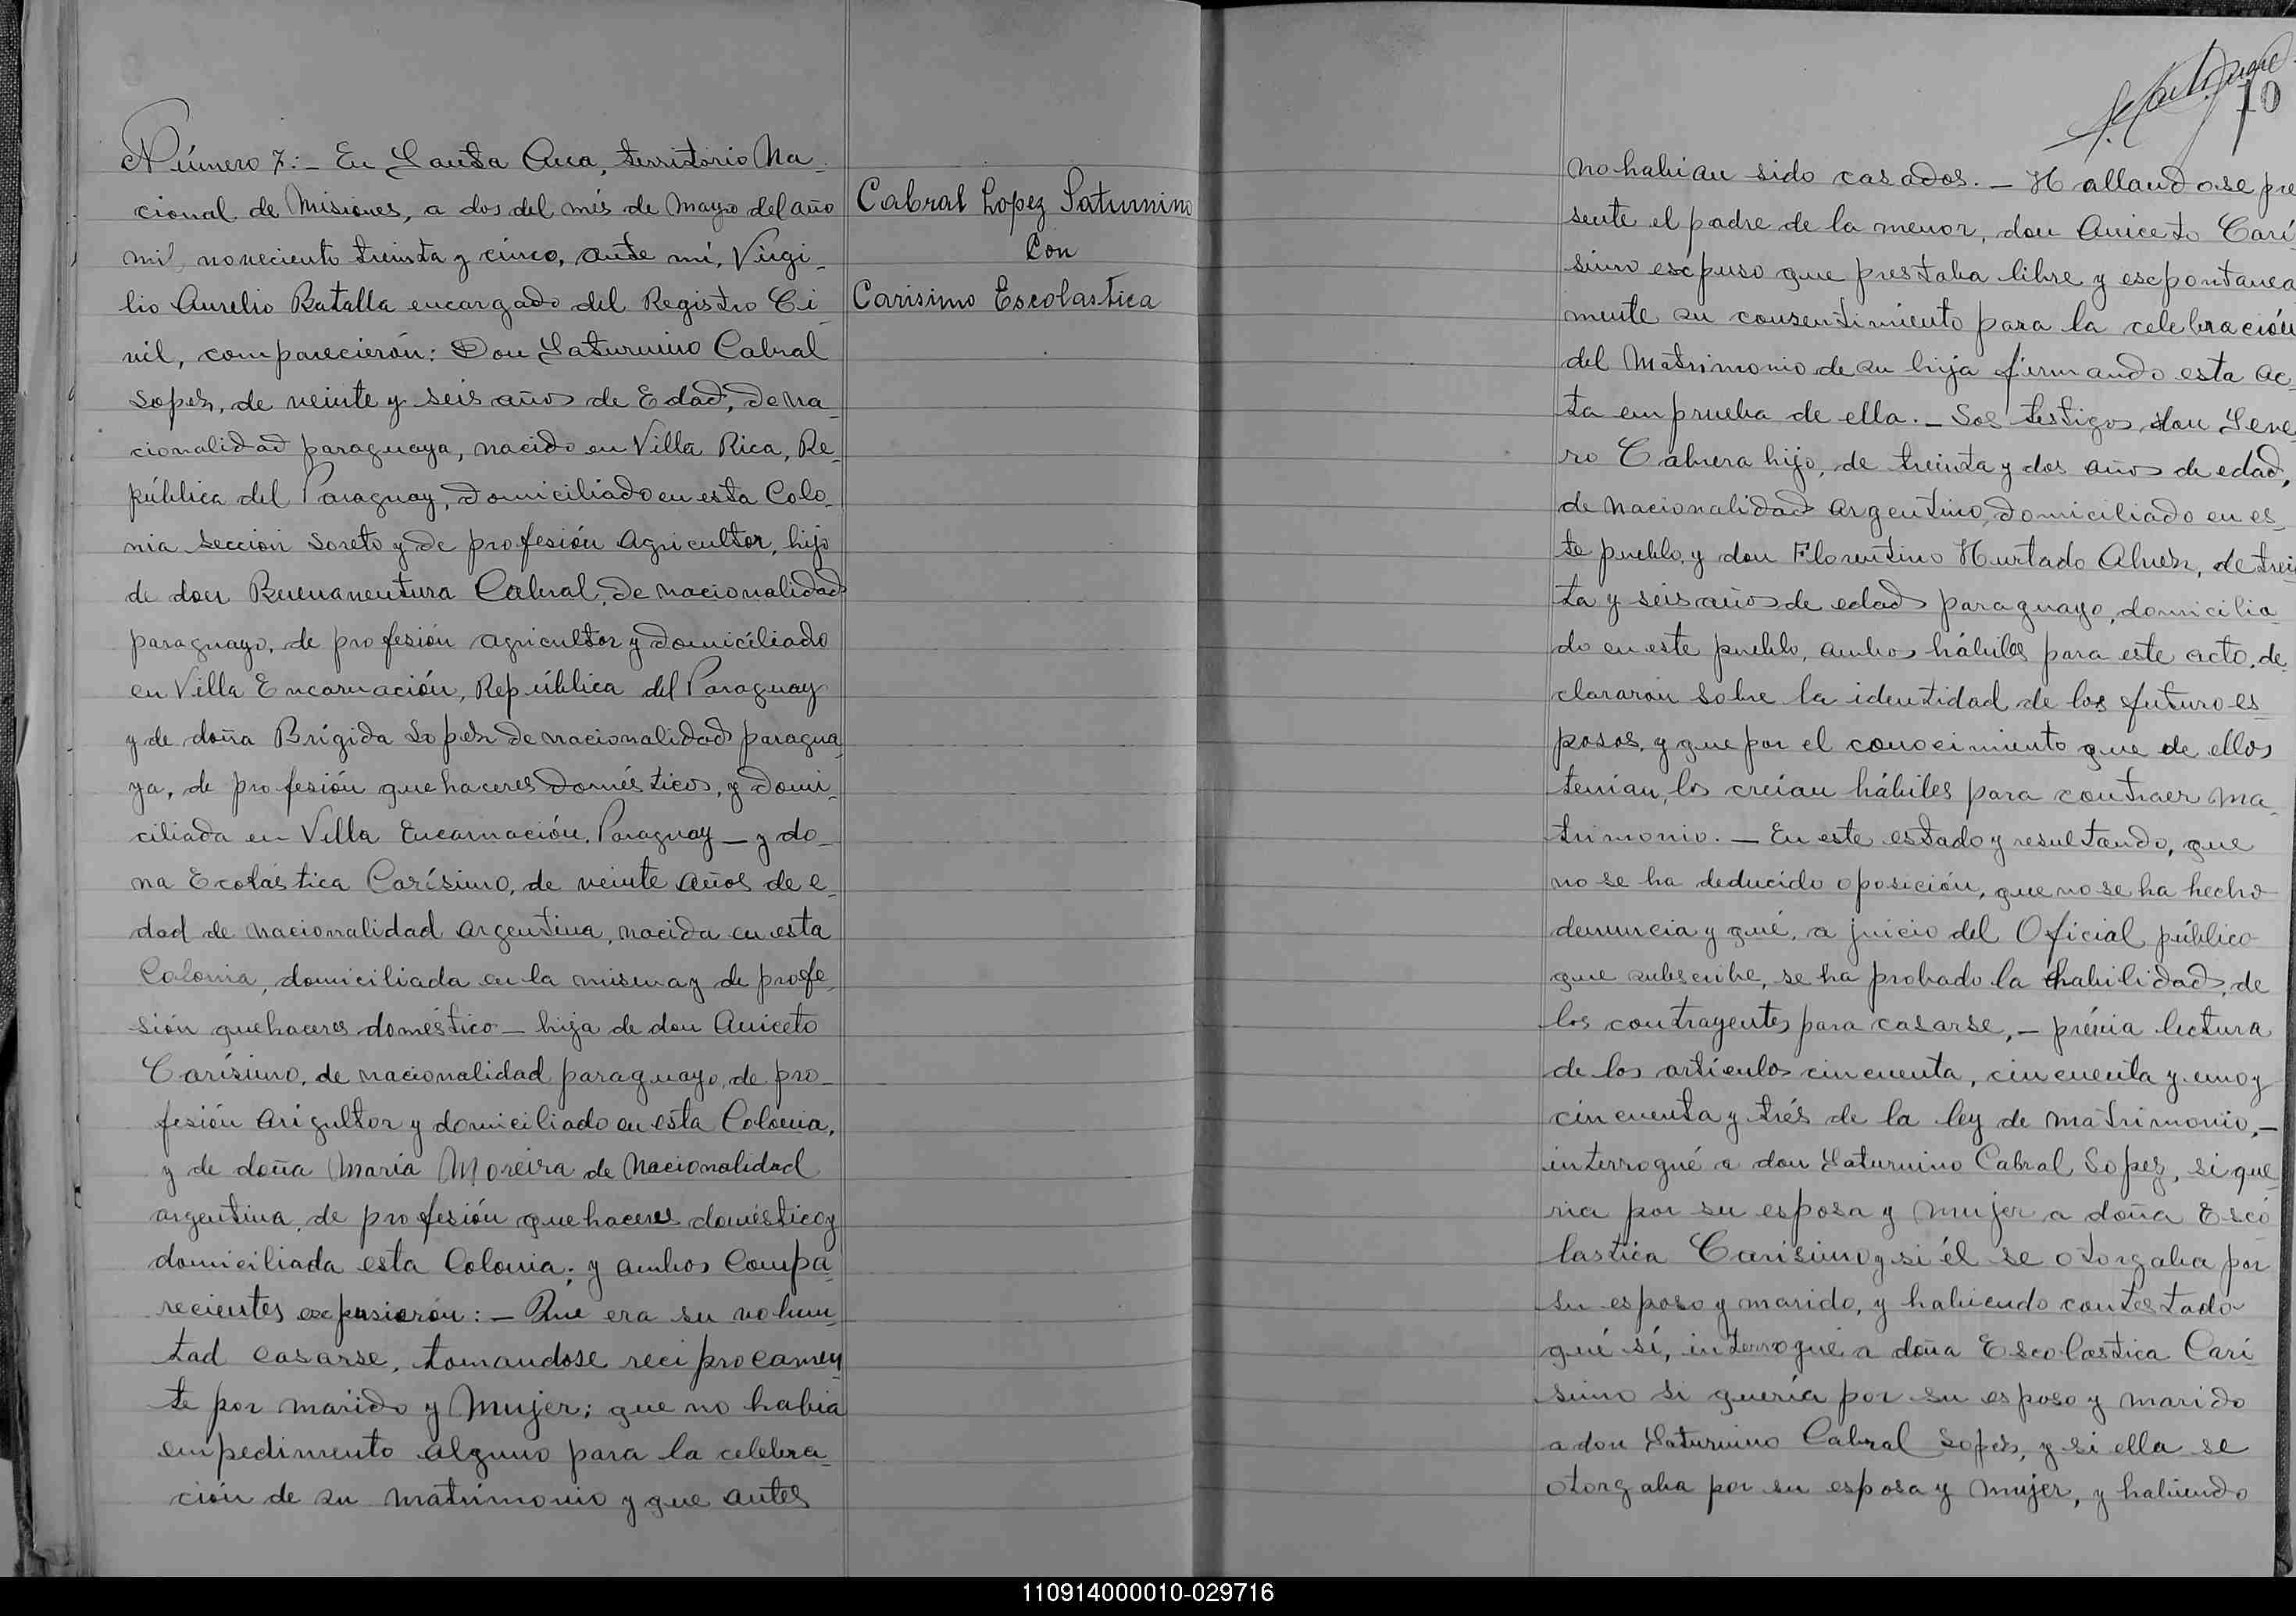 Número 7:- En Santa Ana, territorio Na-
cional de Misiones, a dos del més de Mayo del año
mil noveciento treinta y cinco, ante mí, Virgi-
lio Aurelio Batalla encargado del Registro Ci-
vil, comparecierón: Don Saturnino Cabral
Lopez, de veinte y seis años de Edad, de na-
cionalidad paraguaya, nacido en Villa Rica, Re-
pública del Paraguay, domiciliado en esta Colo-
nia sección Loreto y de profesión Agricultor, hijo
de don Buenaventura Cabral, de nacionalidad
paraguayo, de profesión agricultor y domiciliado
en Villa Encarnación, República del Paraguay
y de doña Brígida Lopez de nacionalidad paragua-
ya, de profesión quehaceres domésticos, y domi-
ciliada en Villa Encarnación, Paraguay - y do-
na Ecolástica Carísimo, de veinte años de e-
dad de nacionalidad argentina, nacida en esta
Colonia, domiciliada en la misma y de profe-
sión quehaceres doméstico - hija de don Aniceto
Carísimo, de nacionalidad paraguayo, de pro-
fesión arigultor y domiciliado en esta Colonia,
y de doña María Moreira de nacionalidad
argentina, de profesión quehaceres doméstico y
domiciliada esta Colonia; y ambos Compa-
recientes expusierón: - Que era su volun-
tad casarse, tomandose reciprocamen-
te por marido y Mujer; que no habia
empedimento alguno para la celebra-
ción de su matrimonio y que antes
Cabral Lopez Saturnino
Con
Carisimo Escolastica
10
no habian sido casados. - Hallandose pre
sente el padre de la menor, don Aniceto Carí
simo escpuso que prestaba libre y escpontanea
mente su consentimiento para la celebración
del Matrimonio de su hija firmando esta ac
ta em prueba de ella. - Los testigos don Gene
ro Cabrera hijo, de treinta y dos años de edad,
de nacionalidad Argentino, domiciliado en es-
te pueblo, y don Florentino Hurtado Alvez, de trein
ta y seis años de edad paraguayo, domicilia-
do en este pueblo, ambos hábiles para este acto, de-
clararon sobre la identidad de los futuro es-
posos, y que por el conocimiento que de ellos
tenian, los creian hábiles para contraer ma-
trimonio. - En este estado y resultando, que
no se ha deducido oposición, que no se ha hecho
denuncia y qué, a juicio del Oficial público
que subscribe, se ha probado la habilidad, de
los contrayentes para casarse, - prévia lectura
de los artículos cincuenta, cincuenta y uno y
cincuenta y trés de la ley de matrimonio, -
interrogué a don Saturnino Cabral Lopez, si que-
ria por su esposa y mujer a doña Esco
lastica Carisimo y si él se otorgaba por
su esposo y marido, y habiendo contestado
qué sí, interrogué a doña Escolastica Cari
simo si quería por su esposo y marido
a don Saturnino Cabral Lopez, y si ella se
otorgaba por su esposa y mujer, y habiendo
110914000010-029716